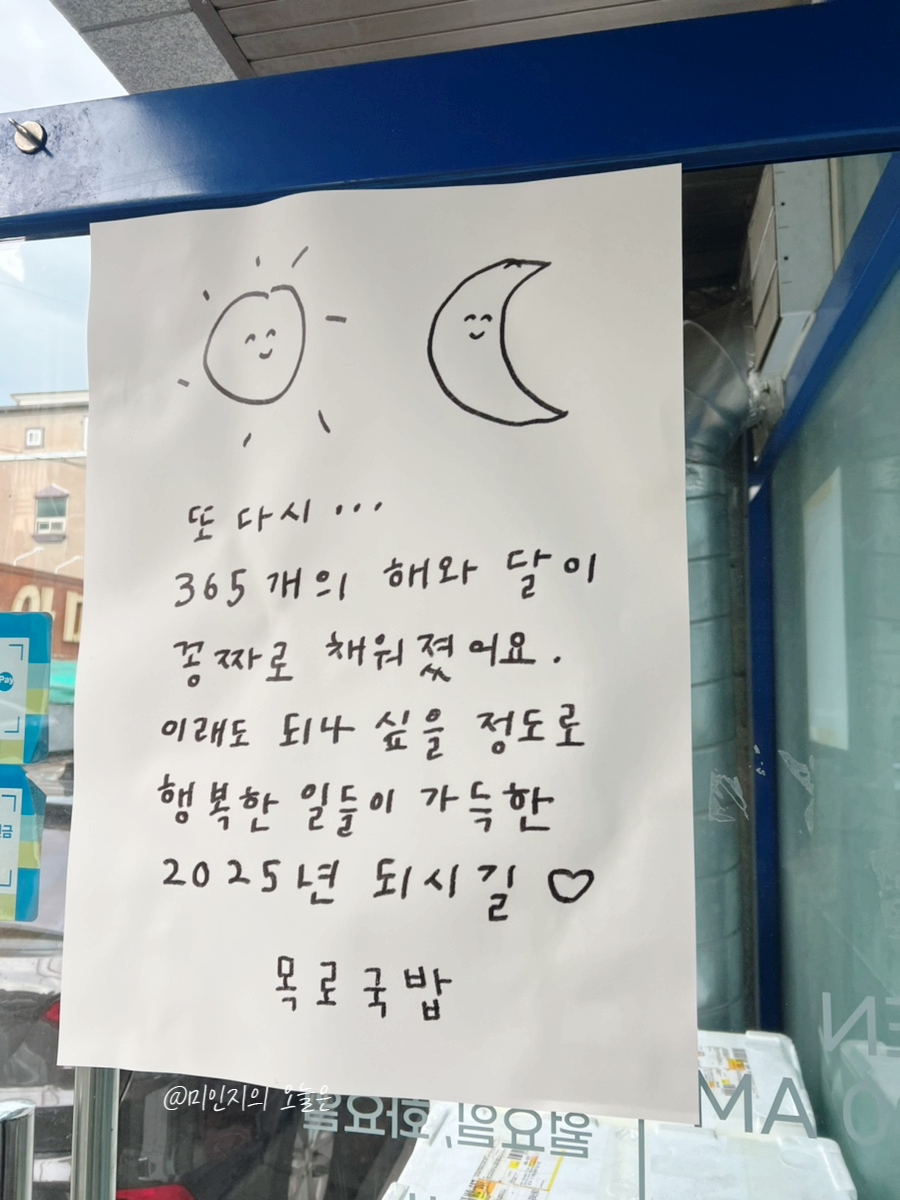 또 다시 ...
365개의 해와 달이
꽁짜로 채워졌어요.
이래도 되나 싶을 정도로
행복한 일들이 가득한
2025년 되시길 ♡
목로국밥
@미인지의 오늘은
월요일, 화요일
AM
EN
Pay